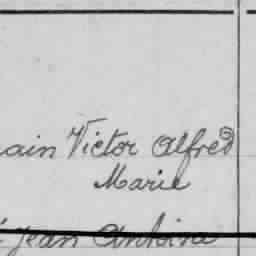 ain Victor Alfred
Marie
Jean Antoine